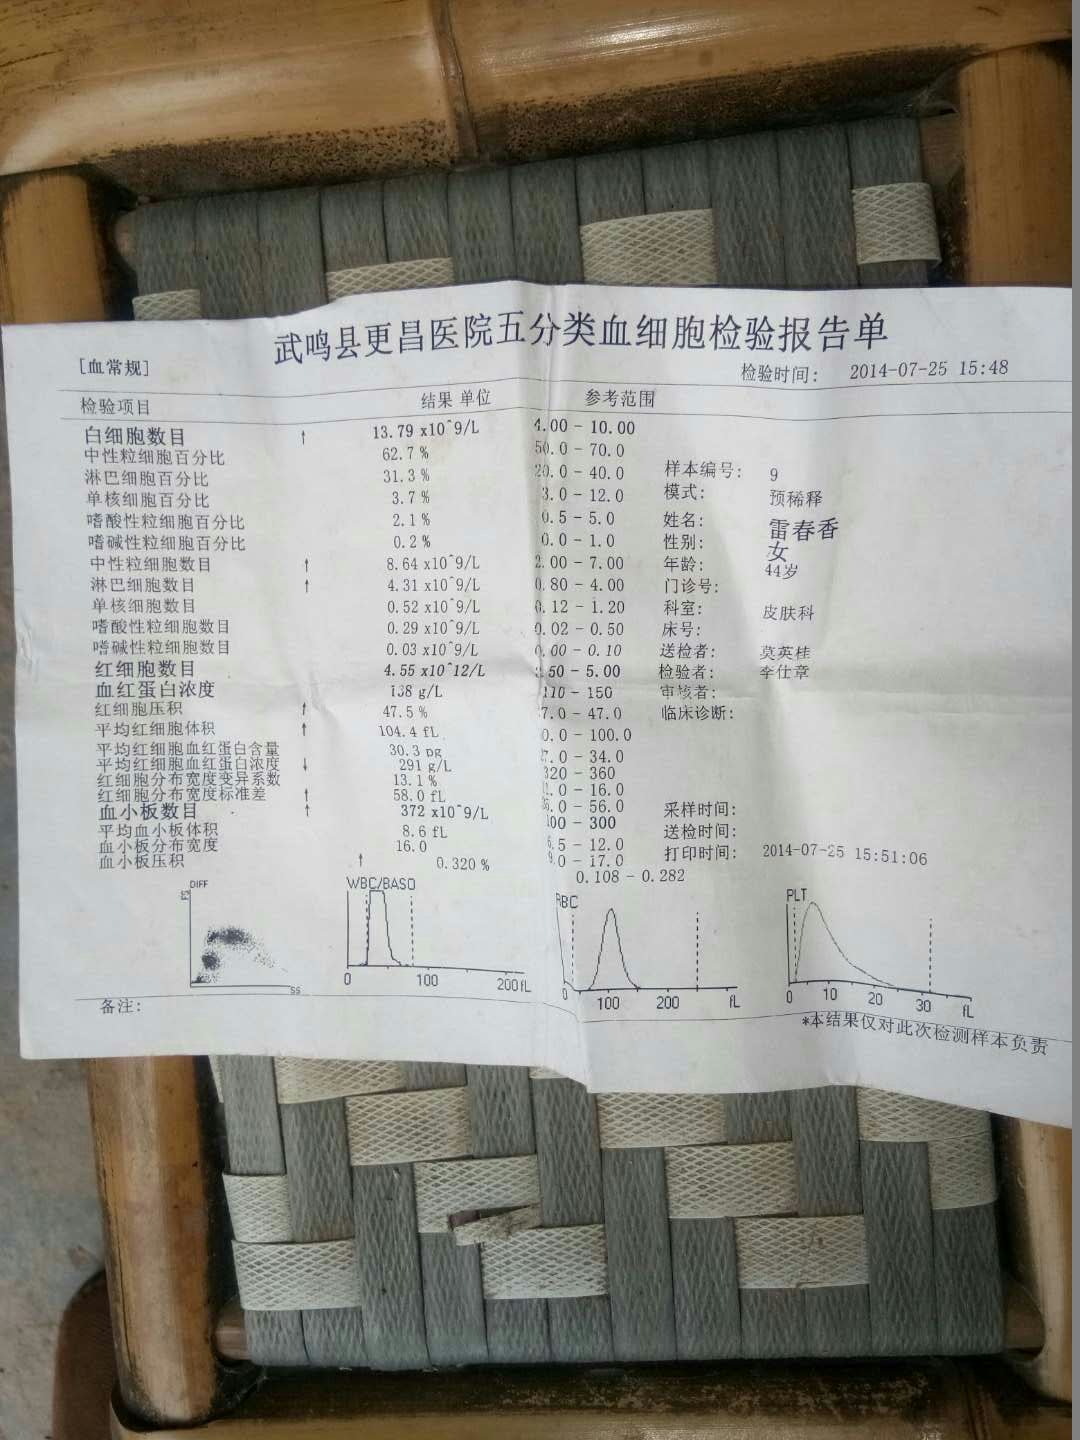 武鸣县更昌医院五分类血细胞检验报告单
[血常规]
检验时间: 2014-07-25 15:48
检验项目 结果 单位 参考范围
白细胞数目 ↑ 13.79 x10^9/L 4.00 - 10.00
中性粒细胞百分比 62.7 % 50.0 - 70.0
淋巴细胞百分比 31.3 % 20.0 - 40.0
单核细胞百分比 3.7 % 3.0 - 12.0
嗜酸性粒细胞百分比 2.1 % 0.5 - 5.0
嗜碱性粒细胞百分比 0.2 % 0.0 - 1.0
中性粒细胞数目 ↑ 8.64 x10^9/L 2.00 - 7.00
淋巴细胞数目 ↑ 4.31 x10^9/L 0.80 - 4.00
单核细胞数目 0.52 x10^9/L 0.12 - 1.20
嗜酸性粒细胞数目 0.29 x10^9/L 0.02 - 0.50
嗜碱性粒细胞数目 0.03 x10^9/L 0.00 - 0.10
红细胞数目 4.55 x10^12/L .50 - 5.00
血红蛋白浓度 138 g/L 110 - 150
红细胞压积 ↑ 47.5 % 7.0 - 47.0
平均红细胞体积 ↑ 104.4 fL 0.0 - 100.0
平均红细胞血红蛋白含量 30.3 pg 7.0 - 34.0
平均红细胞血红蛋白浓度 ↓ 291 g/L 320 - 360
红细胞分布宽度变异系数 13.1 % 1.0 - 16.0
红细胞分布宽度标准差 ↑ 58.0 fL 6.0 - 56.0
血小板数目 ↑ 372 x10^9/L 100 - 300
平均血小板体积 8.6 fL 6.5 - 12.0
血小板分布宽度 16.0 9.0 - 17.0
血小板压积 ↑ 0.320 % 0.108 - 0.282
样本编号: 9
模式: 预稀释
姓名: 雷春香
性别: 女
年龄: 44岁
门诊号:
科室: 皮肤科
床号:
送检者: 莫英桂
检验者: 李仕章
审核者:
临床诊断:
采样时间:
送检时间:
打印时间: 2014-07-25 15:51:06
DIFF
SS
WBC/BASO
0 100 200 fL
RBC
0 100 200 fL
PLT
0 10 20 30 fL
备注:
*本结果仅对此次检测样本负责